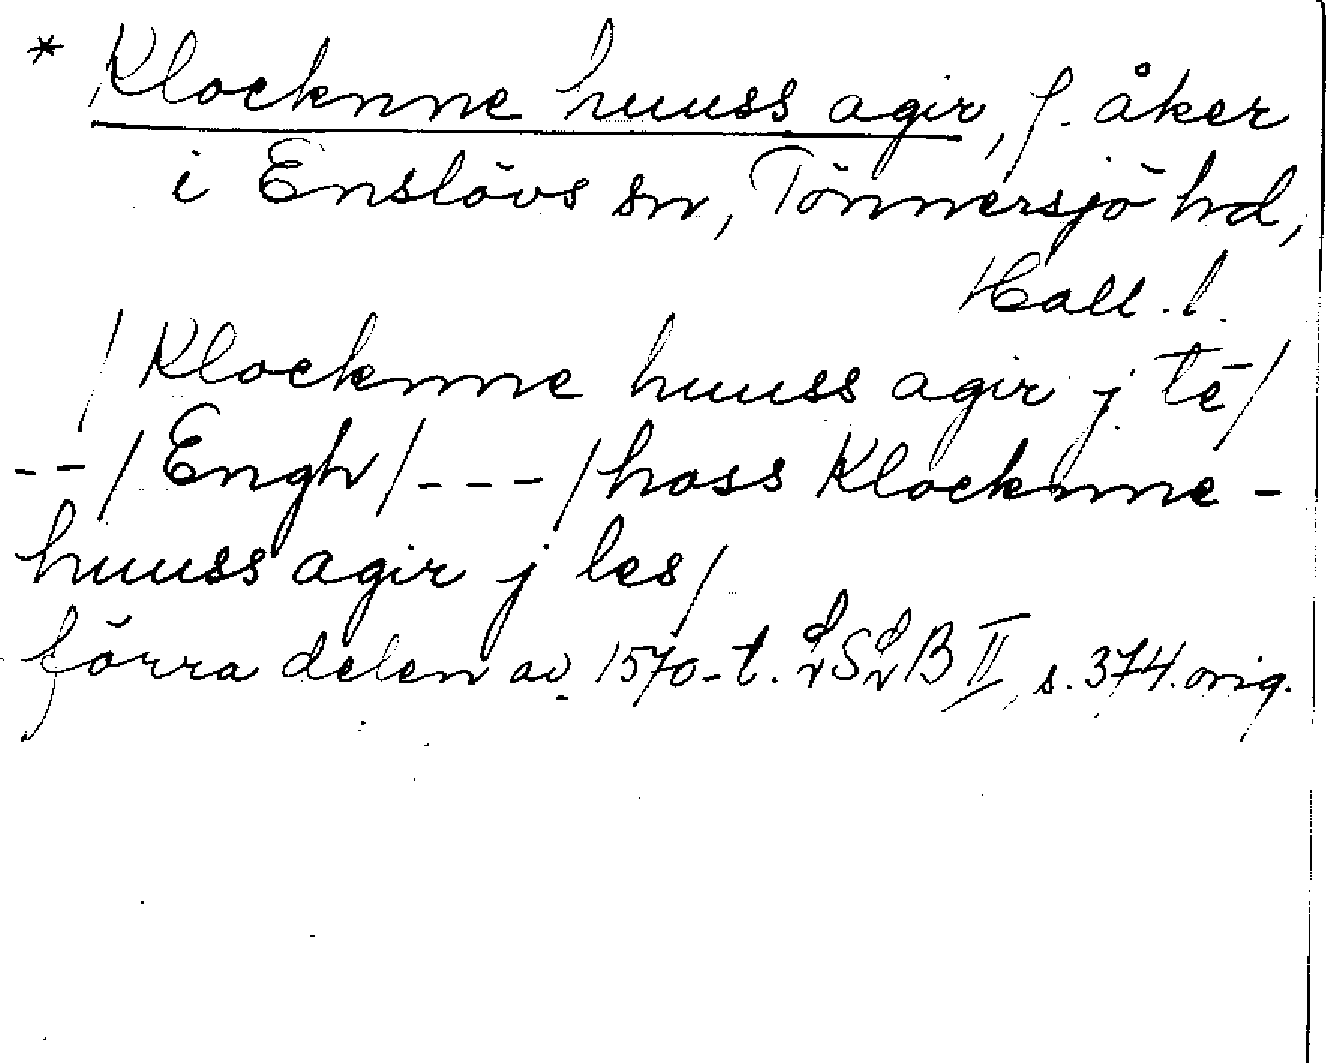 * Klocknne huuss agir, f. åker
i Enslövs sn, Tönnersjö hd,
Hall. l.
/ Klocknne huuss agir j te /
-- / Engh / --- / hoss Klocknne-
huuss agir j les /
förra delen av 1570-t. LSLB II, s. 374. orig.